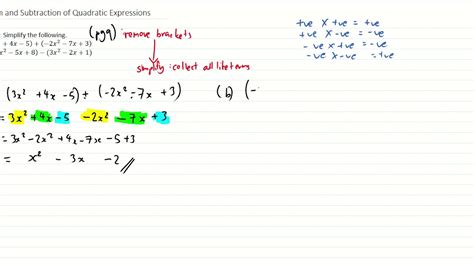 m and Subtraction of Quadratic Expressions
Simplify the following.
+ 4x − 5) + (−2x² − 7x + 3)
x² − 5x + 8) − (3x² − 2x + 1)
(pg9) : remove brackets
simplify : collect all like terms
+ve X +ve = +ve
+ve X -ve = -ve
-ve X +ve = -ve
-ve X -ve = +ve
(3x² +4x -5) + (-2x² -7x +3)
(b) (-
= 3x² +4x -5 -2x² -7x +3
= 3x² -2x² +4x -7x -5 +3
= x² - 3x - 2 //